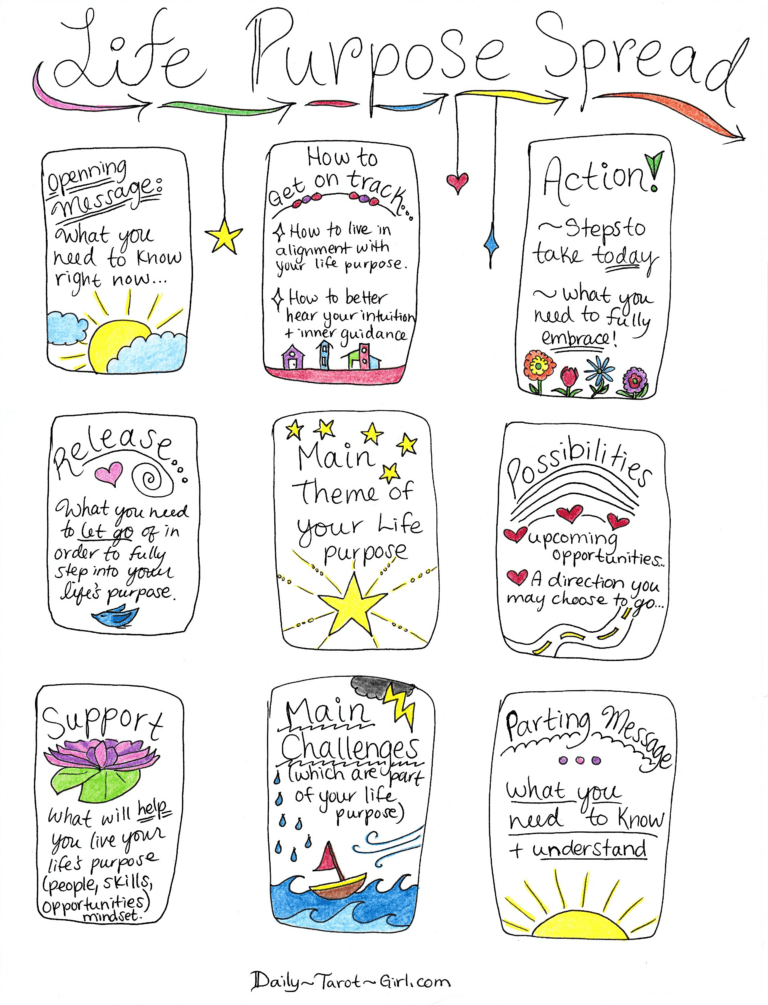 Life Purpose Spread
Openning
Message:
What you
need to Know
right now...
How to
Get on track...
How to live in
alignment with
your life purpose.
How to better
hear your intuition
+ inner guidance
Action!
~Steps to
take today
~ what you
need to fully
embrace!
Release...
What you need
to let go of in
order to fully
step into your
life's purpose.
Main
Theme of
your Life
purpose
Possibilities
upcoming
opportunities...
A direction you
may choose to go...
Support
What will help
you live your
life's purpose
(people, skills,
opportunities)
mindset.
Main
Challenges
(which are part
of your life
purpose)
Parting Message
what you
need to Know
+ understand
Daily~Tarot~Girl.com